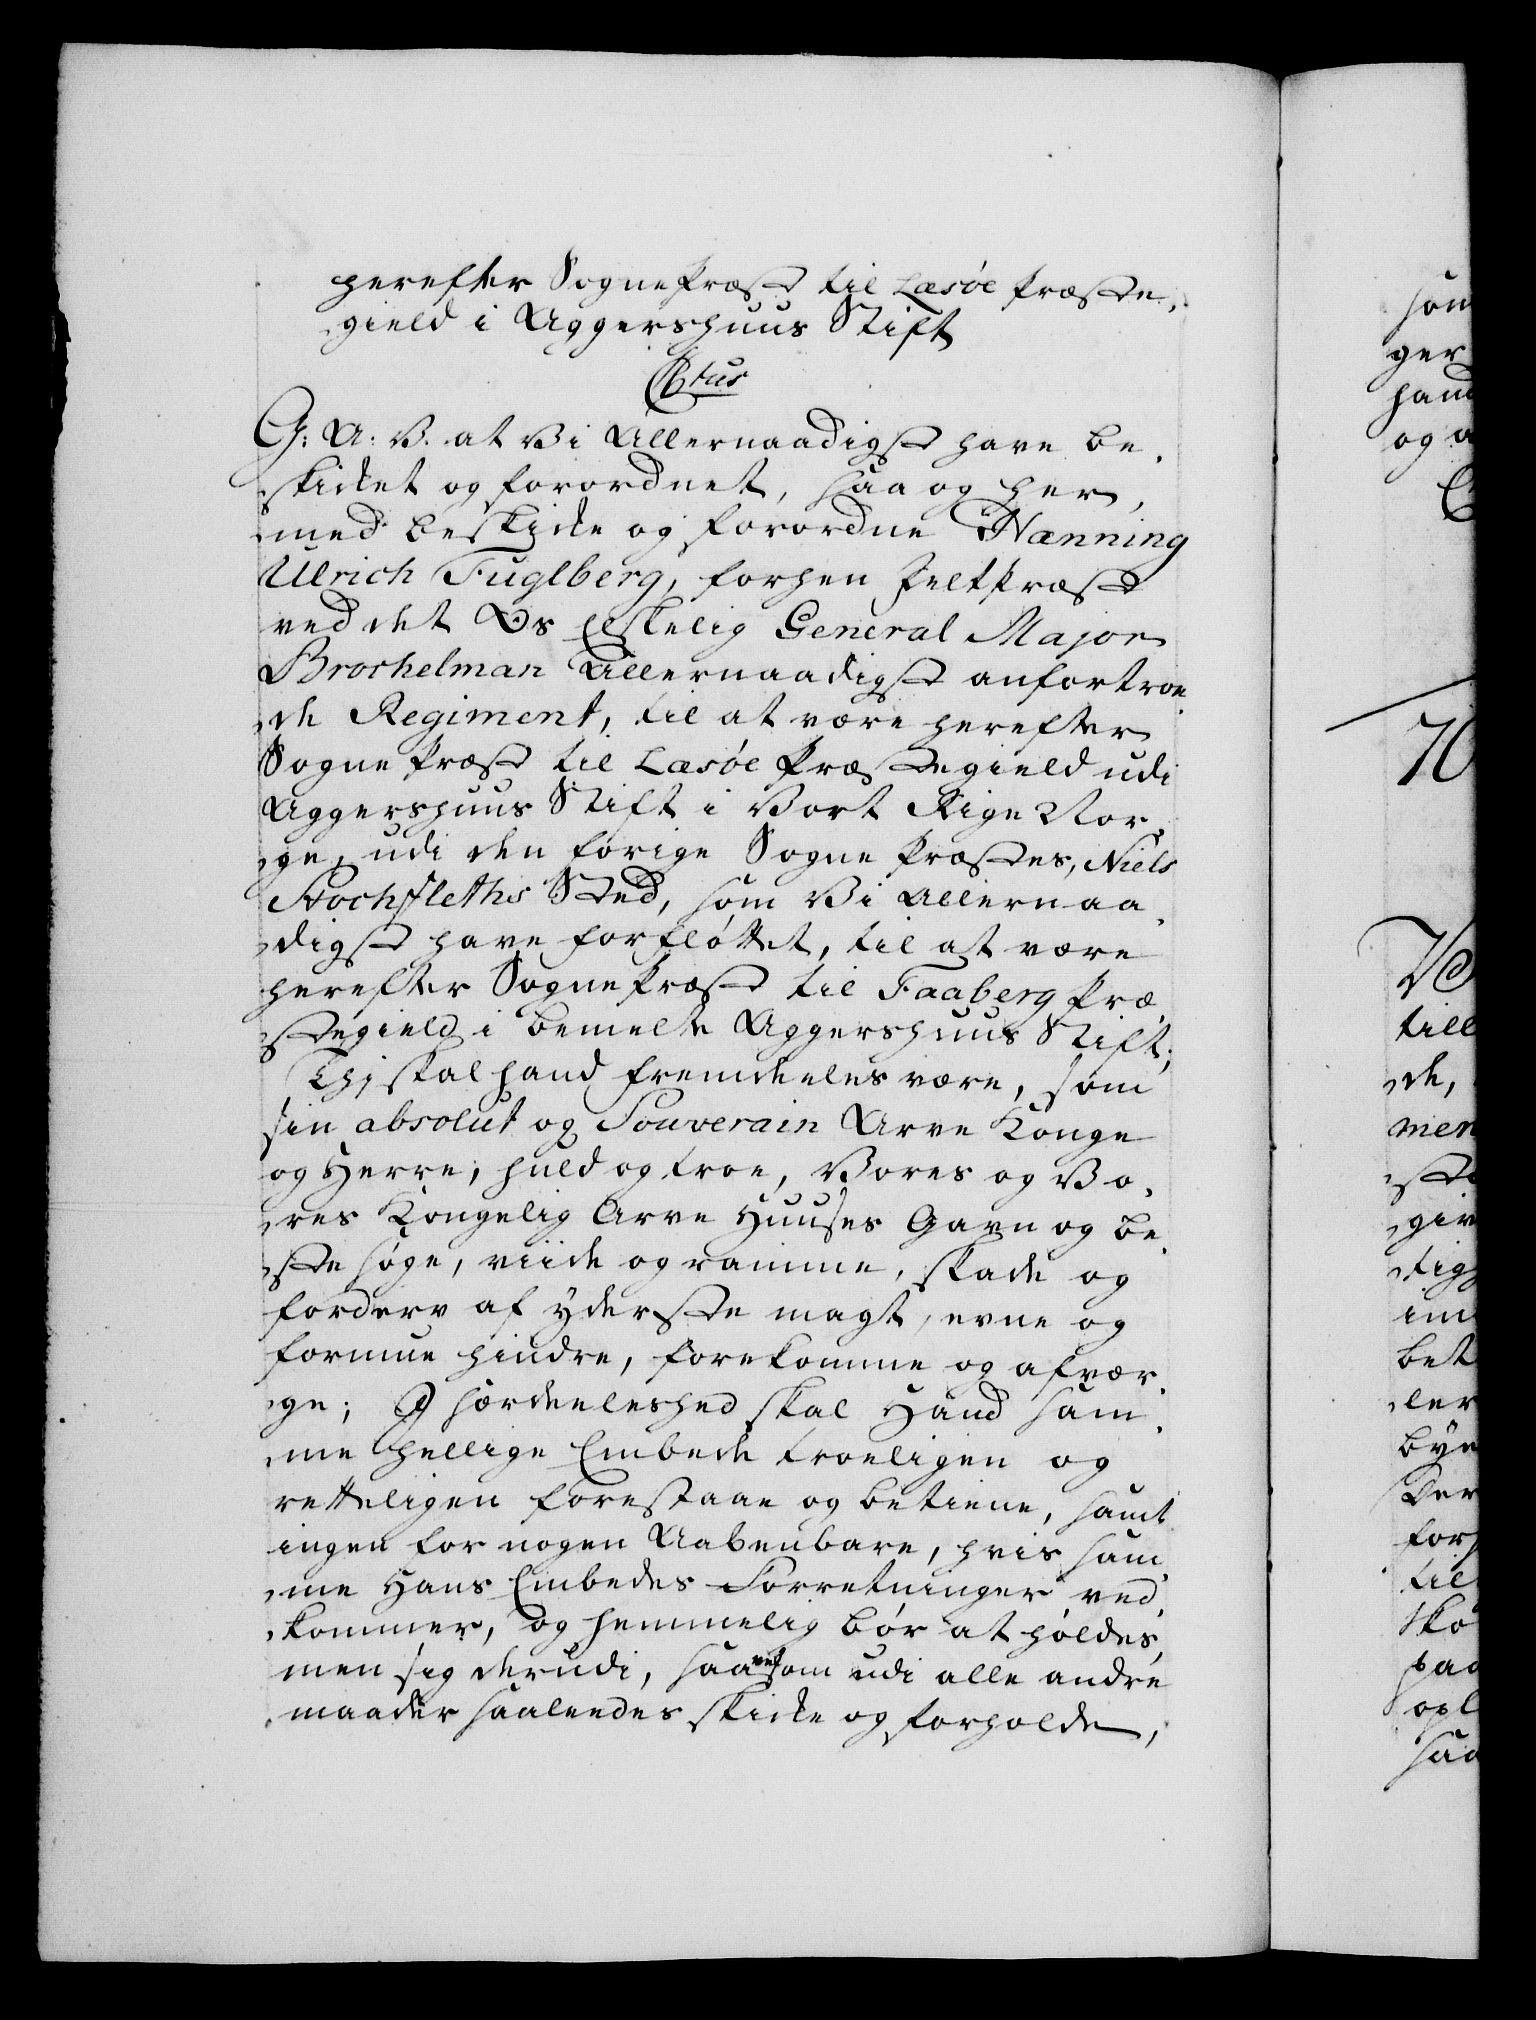 herefter Sognepræst til Læsøe Præste-
gield i Aggershuus Stift
C 6tus
G: A: V. at Vi Allernaadigst have be-
skicket og forordnet, saa og her-
med beskicke og forordne Hænning
Ulrich Fuglberg, forhen Feltpræst
ved det Os Elskelig General Major
Brochelman Allernaadigst anfortroe-
de Regiment, til at være herefter
Sognepræst til Læsøe Præstegield udi
Aggershuus Stift i Vort Rige Nor-
ge, udi den forige Sogne Præstes, Niels
Stochfleths Sted, som Vi Allernaa-
digst have forfløttet, til at være
herefter Sognepræst til Faaberg Præ-
stegield i bemelte Aggershuus Stift;
Thi skal hand fremdeeles være, som
sin absolut og Souverain Arve Konge
og Herre, huld og troe, Vores og Vo-
res Kongelig Arve Huuses Gavn og be-
ste søge, viide og ramme, skade og
forderv af yderste magt, evne og
formue hindre, forekomme og afvær-
ge; I særdeeleshed skal Hand sam-
me hellige Embede troeligen og
retteligen forestaae og betiene, samt
ingen for nogen Aabenbare, hvis sam-
me Hans Embedes Forretninger ved-
kommer, og hemmelig bør at holdes,
men sig derudi, saavelsom udi alle andre
maader saaledes skicke og forholde,
som
ger
hand
og a
70
till
de,
men
ste
giv
tig
im
bet
ler
bye
Der
for
til
sko
paa
opl
saa